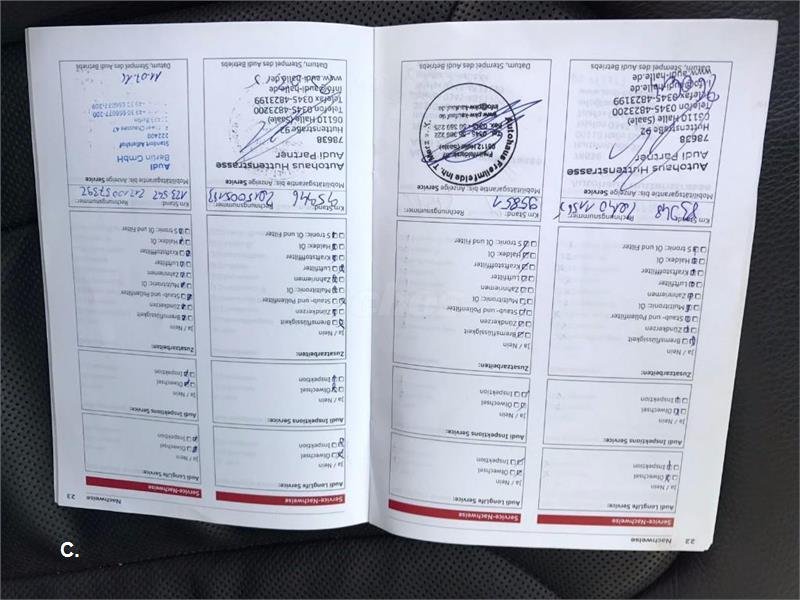 22 Nachweise
Service-Nachweise
Audi LongLife Service:
Ja / Nein
Ölwechsel
Inspektion
Audi Inspektions Service:
Ja / Nein
Ölwechsel
Inspektion
Zusatzarbeiten:
Ja / Nein
Bremsflüssigkeit
Zündkerzen
Staub- und Pollenfilter
Multitronic: Öl
Zahnriemen
Luftfilter
Kraftstofffilter
Haldex: Öl
S tronic: Öl und Filter
Km Stand: Rechnungsnummer:
83948
Mobilitätsgarantie bis: Anzeige
Autohaus Huttenstrasse
Audi Partner
78638
Huttenstraße 92
06110 Halle (Saale)
Telefon 0345-4823200
Telefax 0345-4823199
www.audi-halle.de
Datum, Stempel des Audi Betriebs
Service-Nachweise
Audi LongLife Service:
Ja / Nein
Ölwechsel
Inspektion
Audi Inspektions Service:
Ja / Nein
Ölwechsel
Inspektion
Zusatzarbeiten:
Ja / Nein
Bremsflüssigkeit
Zündkerzen
Staub- und Pollenfilter
Multitronic: Öl
Zahnriemen
Luftfilter
Kraftstofffilter
Haldex: Öl
S tronic: Öl und Filter
Km Stand: Rechnungsnummer:
95881
Mobilitätsgarantie bis: Anzeige
Autohaus Freiimfelde Inh. T. Merz
06112 Halle (Saale)
Datum, Stempel des Audi Betriebs
Nachweise 23
Service-Nachweise
Audi LongLife Service:
Ja / Nein
Ölwechsel
Inspektion
Audi Inspektions Service:
Ja / Nein
Ölwechsel
Inspektion
Zusatzarbeiten:
Ja / Nein
Bremsflüssigkeit
Zündkerzen
Staub- und Pollenfilter
Multitronic: Öl
Zahnriemen
Luftfilter
Kraftstofffilter
Haldex: Öl
S tronic: Öl und Filter
Km Stand: Rechnungsnummer:
Mobilitätsgarantie bis: Anzeige
Autohaus Huttenstrasse
Audi Partner
78638
Huttenstraße 92
06110 Halle (Saale)
Telefon 0345-4823200
Telefax 0345-4823199
info@audi-halle.de
www.audi-halle.de
Datum, Stempel des Audi Betriebs
Service-Nachweise
Audi LongLife Service:
Ja / Nein
Ölwechsel
Inspektion
Audi Inspektions Service:
Ja / Nein
Ölwechsel
Inspektion
Zusatzarbeiten:
Ja / Nein
Bremsflüssigkeit
Zündkerzen
Staub- und Pollenfilter
Multitronic: Öl
Zahnriemen
Luftfilter
Kraftstofffilter
Haldex: Öl
S tronic: Öl und Filter
Km Stand: Rechnungsnummer:
Mobilitätsgarantie bis: Anzeige
Audi
Berlin GmbH
Standort Adlershof
Datum, Stempel des Audi Betriebs
C.